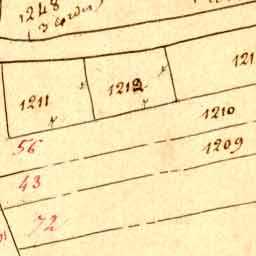 1248
1211
1212
121
1210
1209
56
43
72